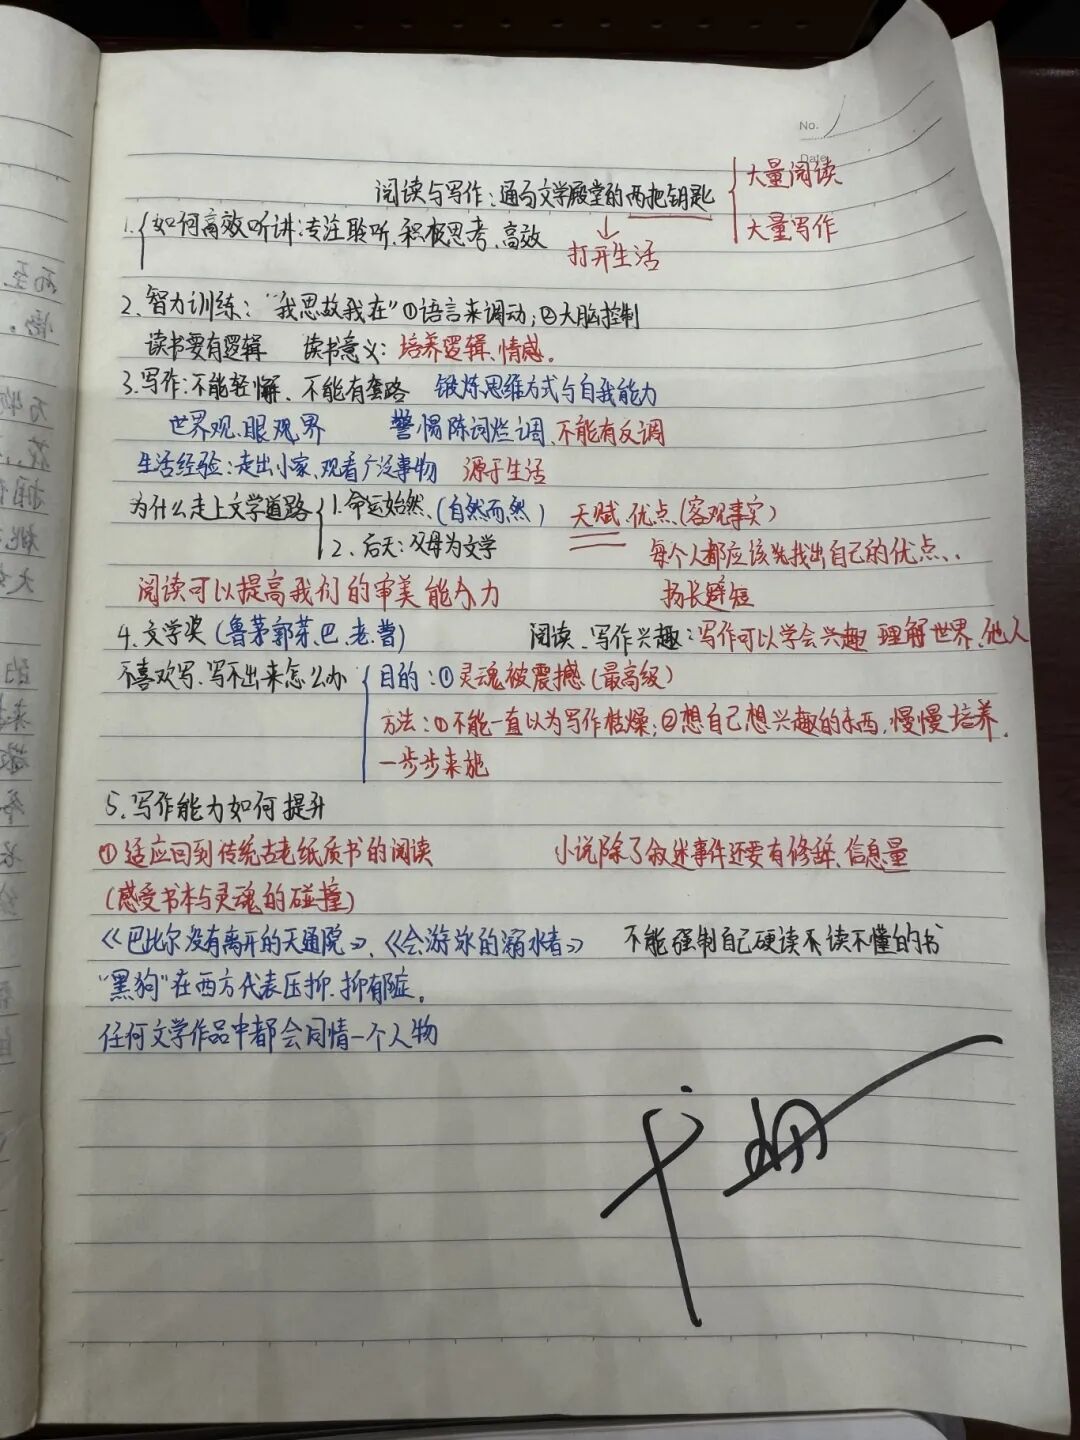 No.
Date
阅读与写作：通与文学殿堂的两把钥匙 { 大量阅读
大量写作
1. { 如何高效听讲：专注聆听、积极思考、高效
打开生活
2. 智力训练：“我思故我在”①语言来调动；②大脑控制
读书要有逻辑 读书意义：培养逻辑、情感。
3. 写作：不能轻懈、不能有套路 锻炼思维方式与自我能力
世界观、眼观、界 警惕陈词烂调、不能有反调
生活经验：走出小家、观看广泛事物 源于生活
为什么走上文学道路 { 1. 命运始然、(自然而然) 天赋、优点、(客观事实)
2、后天：父母为文学 每个人都应该先找出自己的优点、、
阅读可以提高我们的审美能力 扬长避短
4. 文学奖 (鲁茅郭芽、巴、老、曹) 阅读、写作兴趣：写作可以学会兴趣 理解世界、他人
不喜欢写、写不出来怎么办 { 目的：①灵魂被震撼 (最高级)
方法：①不能一直以为写作枯燥；②想自己想兴趣的东西，慢慢培养，
一步步来施
5、写作能力如何提升
①适应回到传统古老纸质书的阅读 小说除了叙述事件还要有修辞、信息量
(感受书本与灵魂的碰撞)
《巴比尔没有离开的天通院》、《会游泳的溺水者》 不能强制自己硬读不读不懂的书
“黑狗”在西方代表压抑、抑郁症。
任何文学作品中都会同情一个人物